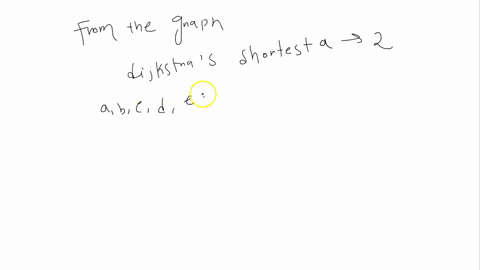 From the graph
dijkstra's shortest a → 2
a, b, c, d, e